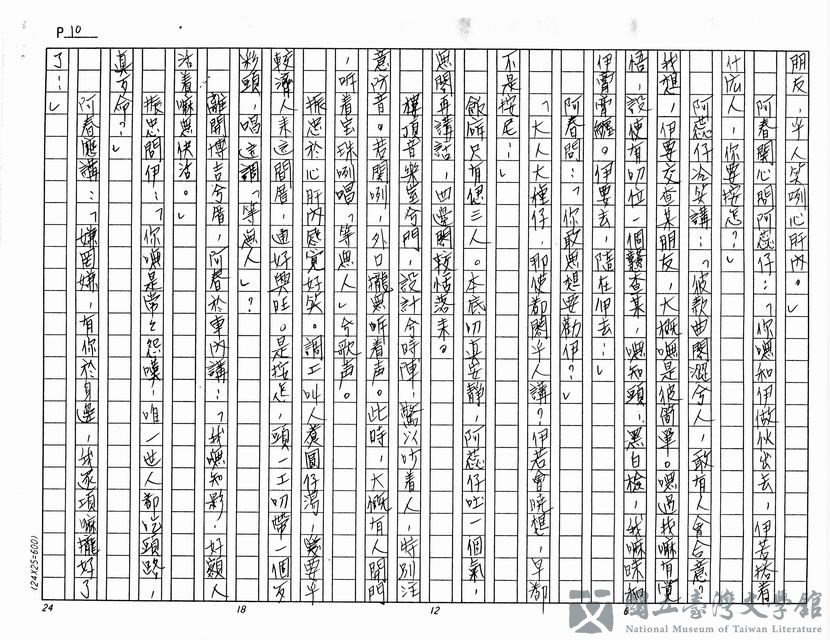 P 10
朋友，半人笑咧心肝內。」
阿春關心問阿蕊仔：「你嘸和伊做伙出去，伊若搭着
什麼人，你要按怎？」
阿蕊仔冷笑講：「彼款曲閣澀兮人，敢有人會合意？
我想，伊要交查某朋友，大概嘸是彼簡單。嘸過我嘛有覺
悟，設使有叨位一個戇查某，嘸知頭，黑白檢，我嘛咪和
伊膏膏纏。伊要去，隨在伊去…」
阿春問：「你敢嘸想要勸伊？」
「大人大種仔，那使都閣半人講？伊若會曉想，早都
不是按尼…」
飯廳只有𪜶三人。本底叨真安靜，阿蕊仔吐一個氣，
嘸閣再講話，四邊閣較恬落來。
樓頂音樂室兮門，設計兮時陣，驚以吵着人，特別注
意防音。若關咧，外口攏嘸听着声。此時，大概有人開門
，听着宝珠咧唱「等無人」兮歌声。
振忠於心肝內感覚好笑。調工叫人煮圓仔湯，發要半
較濟人來這間厝，連好興旺。是按怎，頭一工叨帶一個友
彩頭，唱這調「等無人」？
離開博吉兮厝，阿春於車內講：「我嘸知影，好額人
活着嘛無快活。」
振忠問伊：「你嘸是常々怨嘆，咱一世人都吃頭路，
真歹命？」
阿春應講：「嫌罔嫌，有你於身邊，我逐項嘛攏好了
了…」
24 18 12 6
(24X25=600)
國立臺灣文學館
National Museum of Taiwan Literature